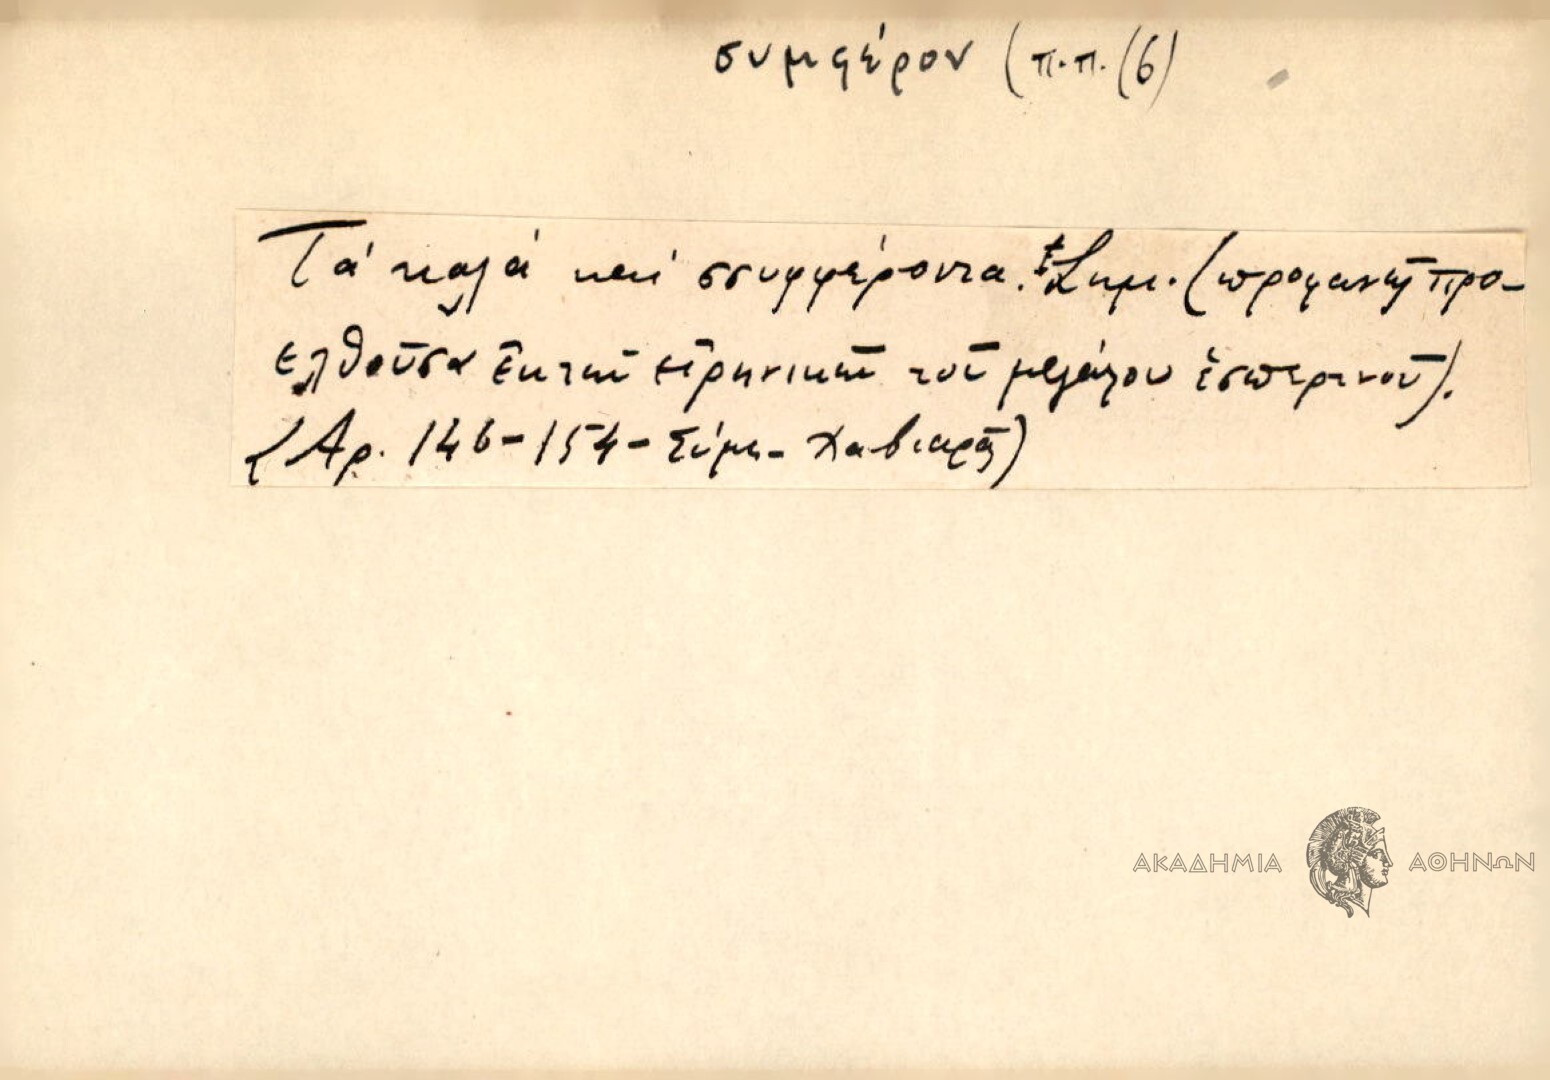 συμφέρον (π.π. (6)
Τά καλά καί σσυφφέροντα. Σημ. (προφανῶς προ-
ελθοῦσα ἐκ τῶν εἰρηνικῶν τοῦ μεγάλου ἑσπερινοῦ).
(Αρ. 146-154- Σύμη- Χαβιαρᾶς)
ΑΚΑΔΗΜΙΑ ΑΘΗΝΩΝ